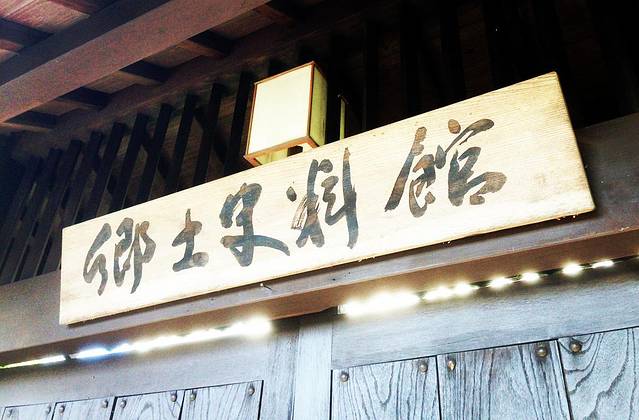 郷土史料館